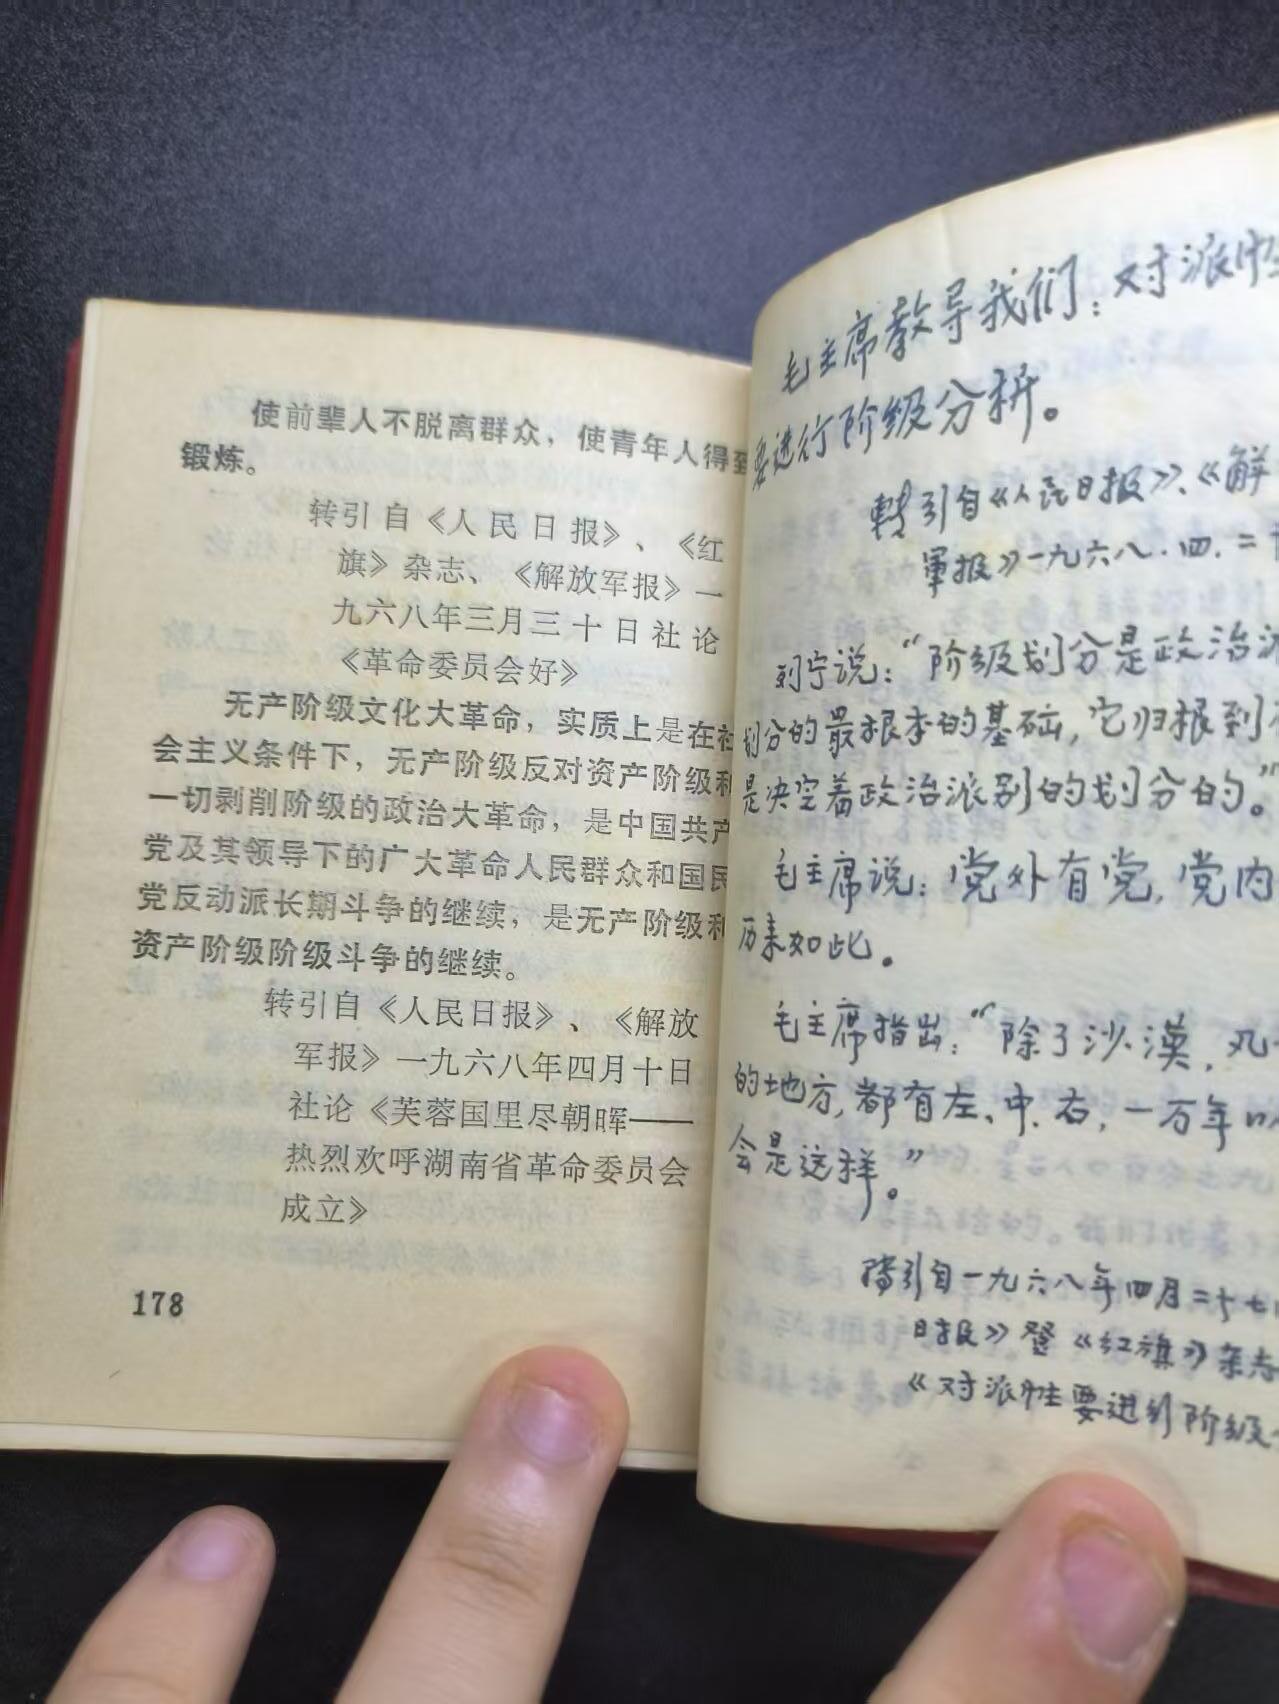 使前辈人不脱离群众，使青年人得到
锻炼。
转引自《人民日报》、《红
旗》杂志、《解放军报》一
九六八年三月三十日社论
《革命委员会好》
无产阶级文化大革命，实质上是在社
会主义条件下，无产阶级反对资产阶级和
一切剥削阶级的政治大革命，是中国共产
党及其领导下的广大革命人民群众和国民
党反动派长期斗争的继续，是无产阶级和
资产阶级阶级斗争的继续。
转引自《人民日报》、《解放
军报》一九六八年四月十日
社论《芙蓉国里尽朝晖——
热烈欢呼湖南省革命委员会
成立》
178
毛主席教导我们：对派性
要进行阶级分析。
转引自《人民日报》、《解
军报》一九六八.四.二
列宁说：“阶级划分是政治派
划分的最根本的基础，它归根到
是决定着政治派别的划分的。”
毛主席说：党外有党，党内
历来如此。
毛主席指出：“除了沙漠，凡
的地方，都有左、中、右，一万年以
会是这样。”
转引自一九六八年四月二十七
日报》暨《红旗》杂志
《对派性要进行阶级